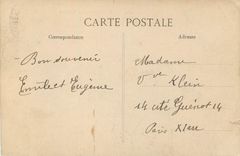 CARTE POSTALE
Correspondance
Adresse
Bon souvenir
Emile et Eugénie
Madame
Vve Klein
14 cité Guénot 14
Paris XIe